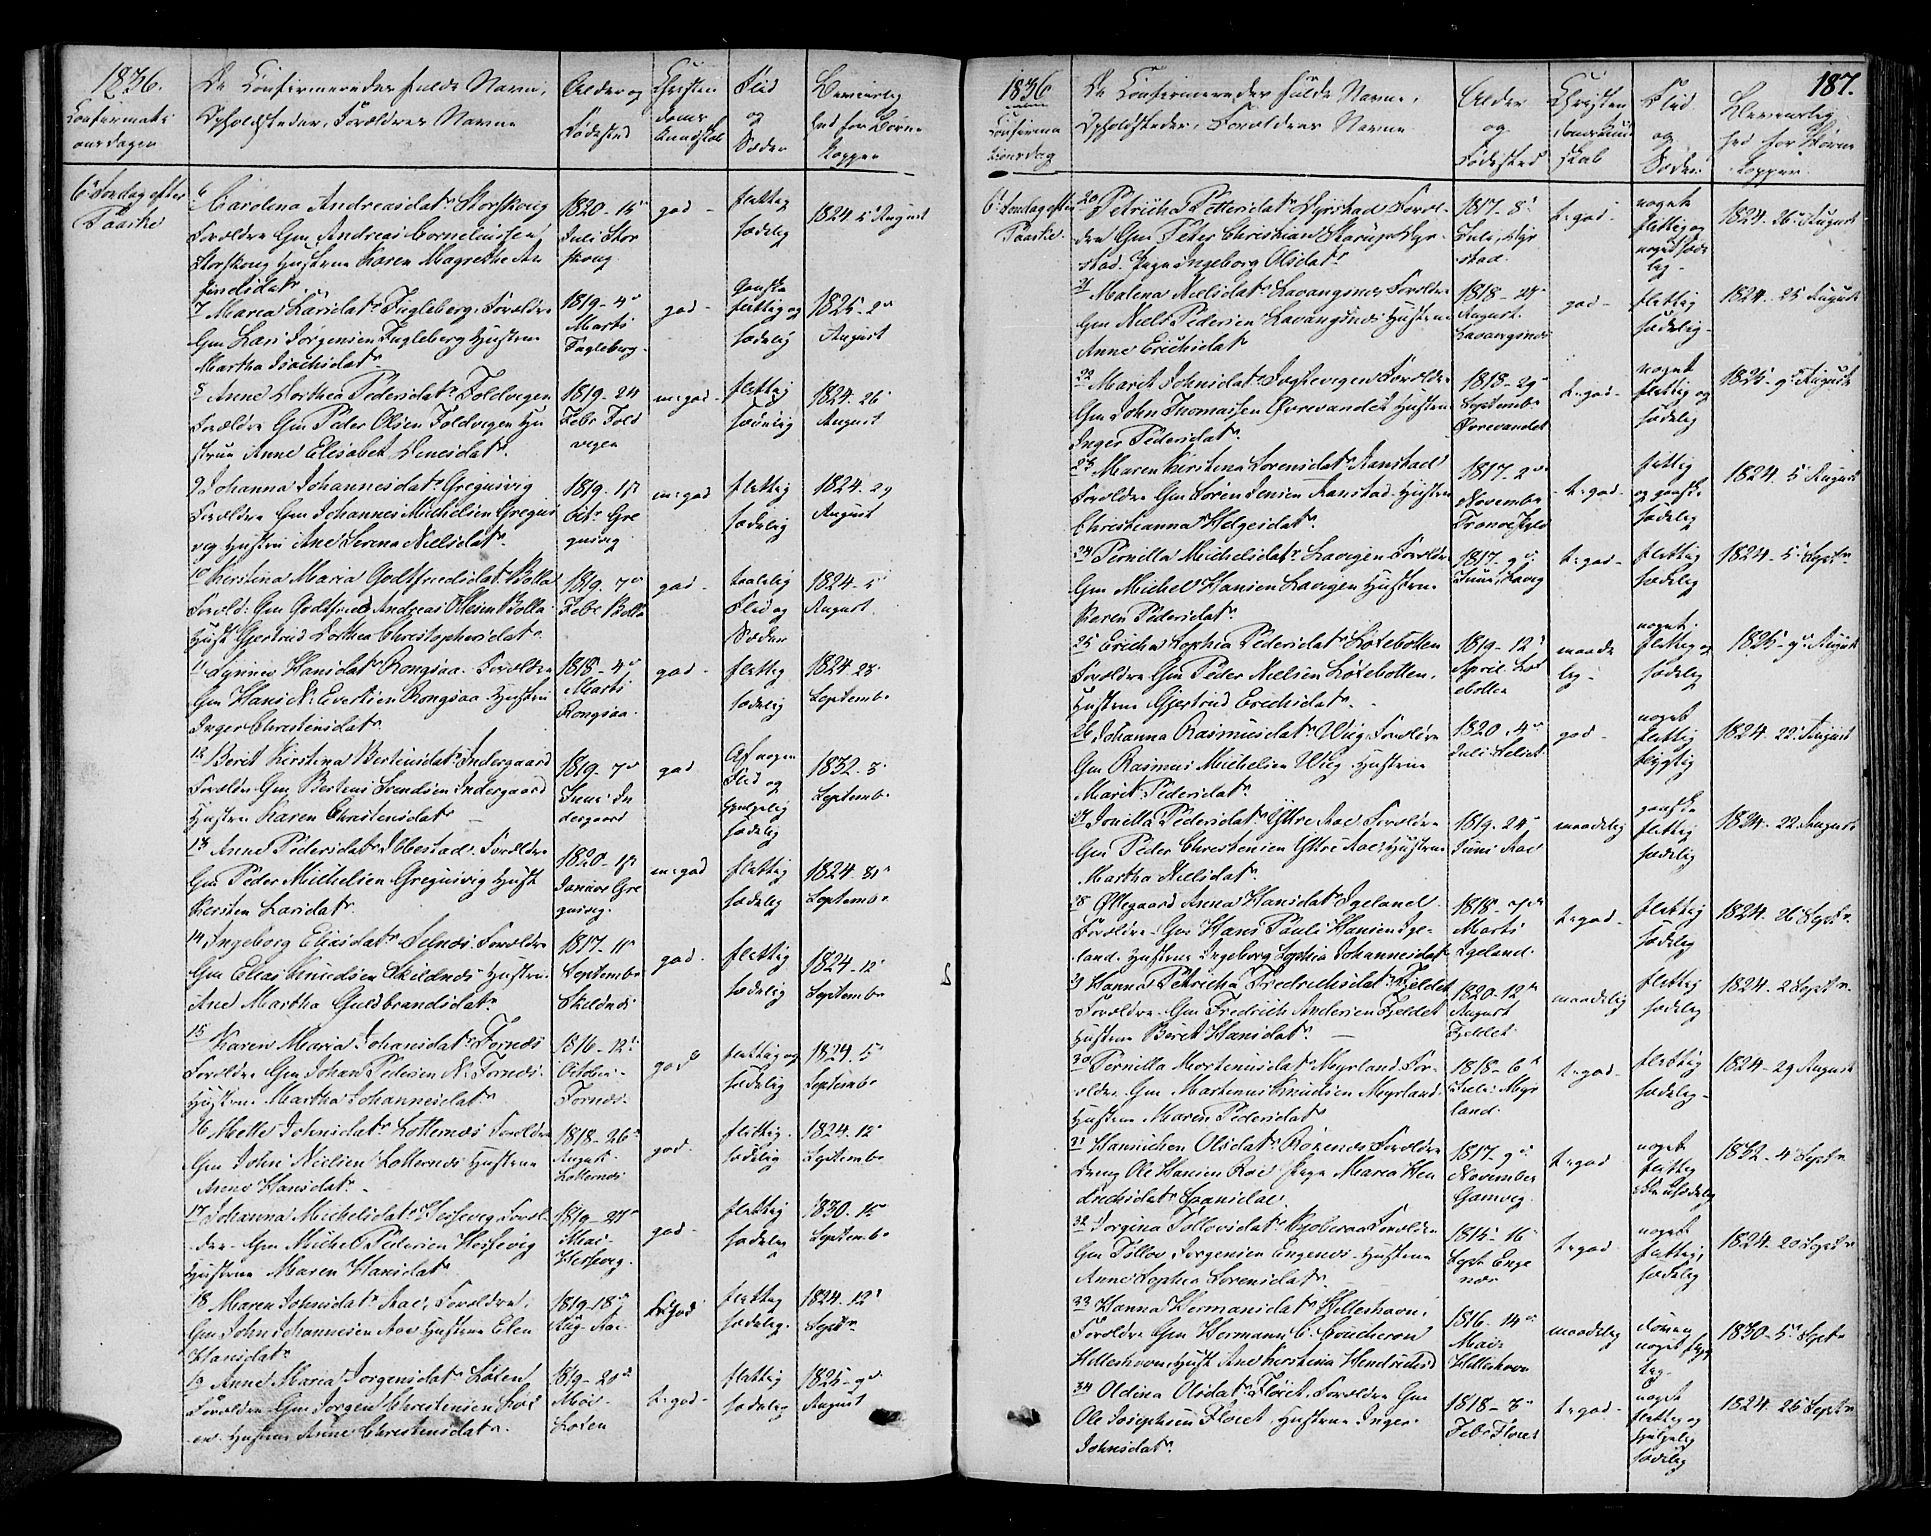 1836.
Confirmati
onsdagen
De Confirmeredes fulde Navne,
Opholdsteder, Forældres Navne
Alder og
Fødested
Christen
doms
Kundskab
Flid
og
Sæder
hed for Børne
kopper
6 Søndag efter
Paaske
6 Carolina Andreasdatr Storskoug
Forældre Gm Andreas Corneliussen
Storskoug Hustrue Karen Magrethe An
findsdatr
1820 - 15
Juli Stor
skoug.
god -
flittig
sædelig
1824 5 August
7 Maria Larsdatr Fugleberg. Forældre
Gm Lars Jørgensen Fugleberg Hustrue
Martha Isachsdatr
1819 - 4de
Marts
Fugleberg.
god -
Ganske
flittig og
sædelig
1825 - 2
August
8 Anne Dorthea Pedersdatr Foldvegen
Forældre Gm Peder Olsen Foldvegen Hu
strue Anne Elisabet Denesdatr.
1819 - 24
Febr Fold
vegen
m: god -
flittig
sædelig
1824. 26
August
9 Johanna Johannesdatr Gregusvig
Forældre Gm Johannes Michelsen Gregus
vig Hustru Ane Serena Nielsdatr.
1819. 17
Octr Gre
gusvig.
m: god
flittig
sædelig
1824. 29
August
10 Kerstina Maria Godtfriedsdatr Bolla
Foræld: Gm Godtfried Andreas Olsen Bolla
Hust Gjertrud Dorthea Christophersdatr
1819. 7de
Febr Bolla
god -
taalelig
Flid og
Sæder
1824 - 5
August.
11 Hansdatr Rongsaa. Forældre
Gm Hans N. Evertsen Rongsaa Hustru
Inger Christensdatr
1818 - 4de
Marts
Rongsaa.
god -
flittig
sædelig
1824 - 28
Septembr
12 Berit Kirstina Bertensdatr Indergaard
Forældre Gm Bertens Svendsen Indergaard
Hustru Karen Christensdatr -
1819 - 7de
Juni In
dergaard
god
Af nogen
Flid og
sædelig
1832. 3
Septembr
13 Anne Pedersdatr Ibbestad. Forældre
Gm Peder Michelsen Gregusvig Hust
Kersten Larsdatr
1820 - 17
Januar Gre
gusvig.
m: god
flittig
sædelig
1824
Septembr
14 Ingeborg Eliasdatr Selnæs. Forældre
Gm Elias Knudsen Skildnæs Hustrue
Ane Martha Guldbrandsdatr.
1817 - 11
Septembr
Skildnæs
god.
flittig
sædelig
1824 - 12
Septembr
15 Karen Maria Johansdatr Fornæs
Forældre Gm Johan Pedersen N: Fornæs.
Hustrue Martha Johannesdatr
1816 - 12
October
Fornæs.
god
flittig og
sædelig
1824. 5
Septembr
16 Mette Johnsdatr Lotternæs Forældre
Gm John Nielsen Lotternæs Hustrue
Anne Hansdatr. -
1818 - 26
August
Lotternæs
god.
flittig.
sædelig
1824. 12
Septembr
17 Johanna Michelsdatr Hessevig. Foræl-
dre - Gm Michel Pedersen Hessevig
Hustrue Maren Hansdatr
1819 - 27
Mai -
Hessevig.
god
flittig
sædelig
1830. 15
Septembr
18 Maren Johnsdatr Aae. Forældre
Gm John Johannesen Aae Hustrue Elen
Hansdatr
1819 - 18
Aug - Aae
t: god
flittig
sædelig.
1824. 12
Septr
19 Anne Maria Jørgensdatr Løten
Forældre Gm Jørgen Christensen Løt
en. Hustrue Anne Christensdatr.
1819 - 21
Mai -
Løten
t: god -
flittig
sædelig
1825 - 9
August
1836
Confirma
tionsdag
De Confirmeredes fulde Navne,
Opholdsteder, Forældres Navne
Alder
og
Fødested
Christen
domskund
skab
Flid
og
Sæder
187.
hed for Børne
kopper.
6 Søndag efter
Paaske.
20 Petricha Pettersdatr Dyrstad Foræl-
dre Gm Peter Christian Skarup Dyr-
stad. Pige Ingeborg Olsdatr
1817 - 8
Juli, Dyr
stad.
t: god -
noget
flittig og
noget sæde
lig -
1824. 26 August
21 Malena Nielsdatr Lavangsnæs Forældre
Gm Niels Pedersen Lavangsnæs Hustrue
Anne Erichsdatr
1818 - 27
August.
Lavangsnæs
god -
flittig
sædelig -
1824. 25 August
22 Marit Johnsdatr Forældre
Gm John Thomassen Øvrevandet Hustrue
Inger Pedersdatr.
1818 - 29
Septembr
Øvrevandet
t: god -
noget
flittig og
sædelig
1825 - 9 August
23 Maren Kirstina Lorensdatr Aanstad
Forældre Gm Søren Jensen Aanstad Hustrue
Christianna Helgesdatr.
1817 - 2
Novembr
t: god -
flittig
og ganske
sædelig
1824. 5 August
24 Pernilla Michelsdatr Lavigen Forældre
Gm Michel Hansen Lavigen Hustrue
Karen Pedersdatr
1817 - 9
Juni Lavig
t: god -
flittig
sædelig
1824 - 5 Septr
25 Ericha Sophia Pedersdatr Løtebotten
Forældre Gm Peder Nielsen Løtebotten.
Hustrue Gjertrud Erichsdatr. -
1819 - 12
April - Løt
ebotten
maade
lig -
noget
flittig og
sædelig
1825 - 9 August
26 Johanna Rasmusdatr Wiig Forældre
Gm Rasmus Michelsen Wiig Hustrue
Marit Pedersdatr
1820 . 4de
Juli
god -
noget
flittig
1824. 22 August
27 Pedersdatr Yttre Aae Forældre
Gm Peder Christensen Yttre Aae Hustrue
Martha Nielsdatr
1819. 24
Juni Aae
maadelig
ganske
flittig
sædelig
1824. 22 August
28 Øllegaard Anna Hansdatr Igeland
Forældre Gm Hans Pauli Hansen Ige-
land. Hustrue Ingeborg Sophia Johannesdatr
1818 - 7de
Marts
Igeland.
t: god -
flittig
sædelig
1824. 26 Septr
Hanna Petricha Fredrichsdatr Fjeldet
Forældre Gm Fredrich Andersen Fjeldet
Hustrue Beret Hansdatr -
1820 - 12
August
Fjeldet
maadelig
flittig
sædelig
1824. 2 Septr
30 Pernilla Mortensdatr Myrland. For-
ældre Gm Martenus Knudsen Myrland.
Hustrue Maren Pedersdatr
1818 - 6
Juli Myr
land.
t: god -
flittig
sædelig -
1824 - 29 August
31 Hannichen Olsdatr Rørnæs Forældre
dreng Ole Hansen Roe Pige Maria Hen
drichsdatr
1817 - 9
November
Gamvig.
t: god
noget
flittig
1832 - 4 Septr
32 Jorgina Tollevsdatr Forældre
Gm Tollev Jørgensen Engenæs Hustrue
Anne Sophia Sørensdatr.
1815 - 16
Septr Enge
næs
t: god -
noget
flittig,
sædelig
1824 - 20 Septr
33 Hanna Hermansdatr Helleshavn.
Forældre Gm Hermann C: Boucheron
Helleshavn Hust Ane Kirstina Hendriksd
1816 - 14de
Mai
Helleshavn
maadelig
noget
lig -
1830 - 5 Septr
34 Oldina Olsdatr Floret. Forældre Gm
Ole Josephsen Floret. Hustrue Inger
Johnsdatr.
1818 - 3
Febr Floret
t: god -
noget
flittig og
sædelig
1824. 26 Septr